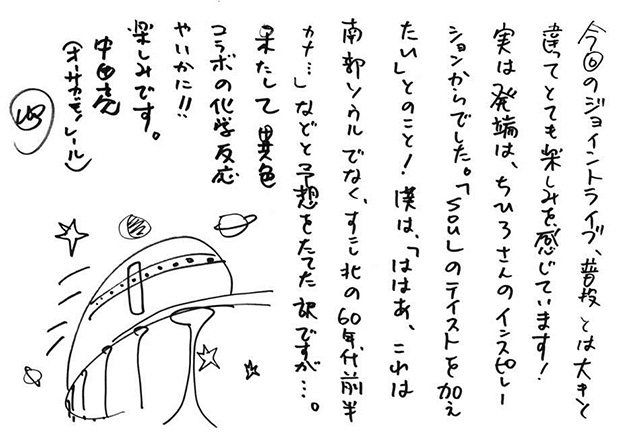 今回のジョイントライブ、普段とは大きく
違ってとても楽しみを感じています!
実は発端は、ちひろさんのインスピレー
ションからでした。「soulのテイストを加え
たい」とのこと! 僕は、「ははあ、これは
南部ソウルでなく、すこし北の60年代前半
カナ…」などと予想をたてた訳ですが…。
果たして異色
コラボの化学反応
やいかに!!
楽しみです。
中田亮
(オーサカ=モノレール)